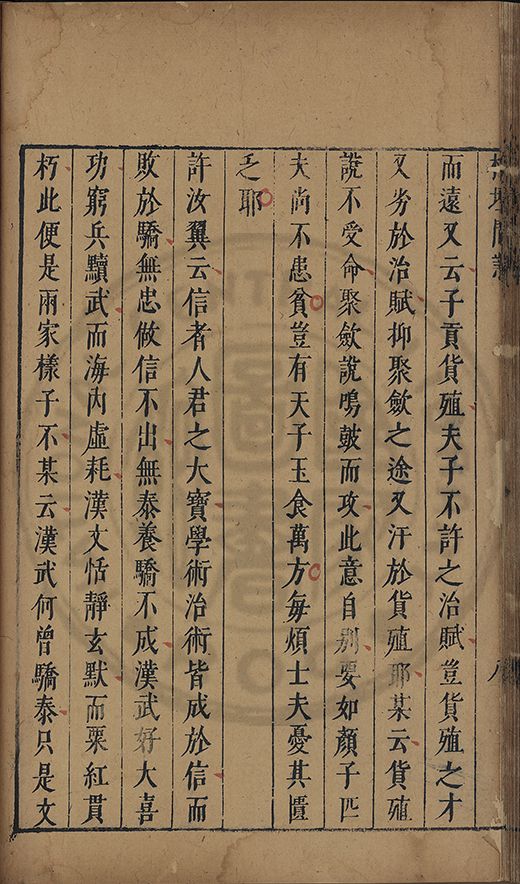 而遠又云子貢貨殖夫子不許之治賦豈貨殖之才
又劣於治賦抑聚斂之途又汙於貨殖耶某云貨殖
說不受命聚斂說鳴鼓而攻此意自別要如顏子匹
夫尚不患貧豈有天子玉食萬方每煩士夫憂其匱
乏耶
許汝翼云信者人君之大寶學術治術皆成於信而
敗於驕無忠做信不出無泰養驕不成漢武好大喜
功窮兵黷武而海內虛耗漢文恬靜玄默而粟紅貫
朽此便是兩家樣子不某云漢武何曾驕泰只是文